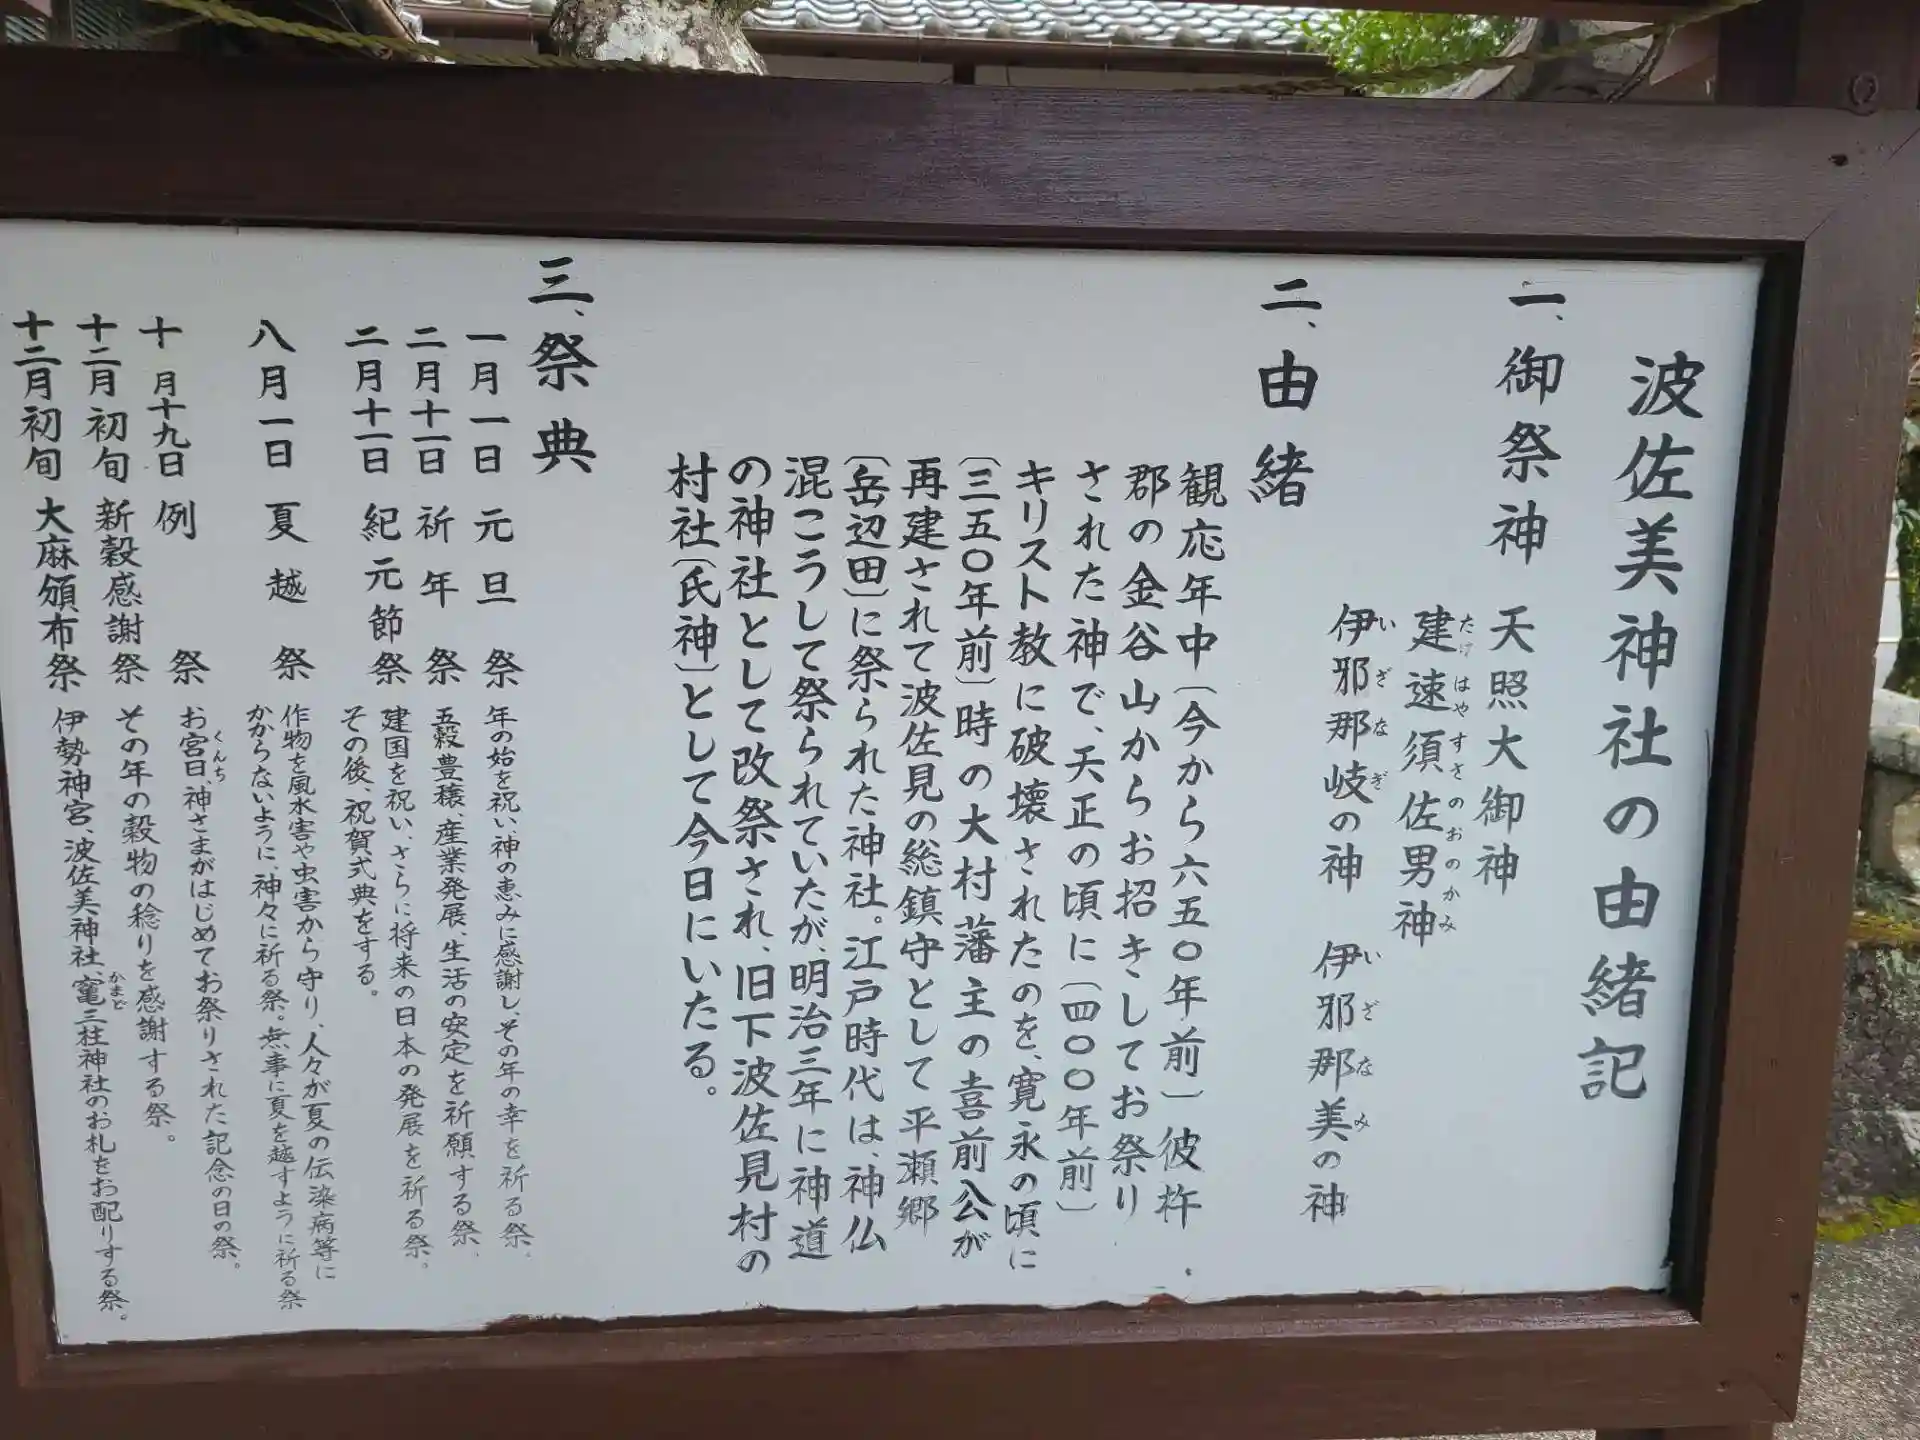 波佐美神社の由緒記
一、御祭神 天照大御神
建速須佐男神
たけはやすさのおのかみ
伊邪那岐の神 伊邪那美の神
いざなぎ いざなみ
二、由緒
観応年中〔今から六五〇年前〕彼杵
郡の金谷山からお招きしてお祭り
された神で、天正の頃に〔四〇〇年前〕
キリスト教に破壊されたのを、寛永の頃に
〔三五〇年前〕時の大村藩主の喜前公が
再建されて波佐見の総鎮守として平瀬郷
〔岳辺田〕に祭られた神社。江戸時代は、神仏
混こうして祭られていたが、明治三年に神道
の神社として改祭され、旧下波佐見村の
村社〔氏神〕として今日にいたる。
三、祭典
一月一日 元旦祭 年の始を祝い神の恵みに感謝し、その年の幸を祈る祭、
二月十一日 祈年祭 五穀豊穣、産業発展、生活の安定を祈願する祭、
二月十一日 紀元節祭 建国を祝い、さらに将来の日本の発展を祈る祭。
その後、祝賀式典をする。
八月一日 夏越祭 作物を風水害や虫害から守り、人々が夏の伝染病等に
かからないように、神々に祈る祭。無事に夏を越すように祈る祭
十月十九日 例祭 お宮日、神さまがはじめてお祭りされた記念の日の祭。
くんち
十二月初旬 新穀感謝祭 その年の穀物の稔りを感謝する祭。
十二月初旬 大麻頒布祭 伊勢神宮、波佐美神社、竈三柱神社のお札をお配りする祭。
かまど